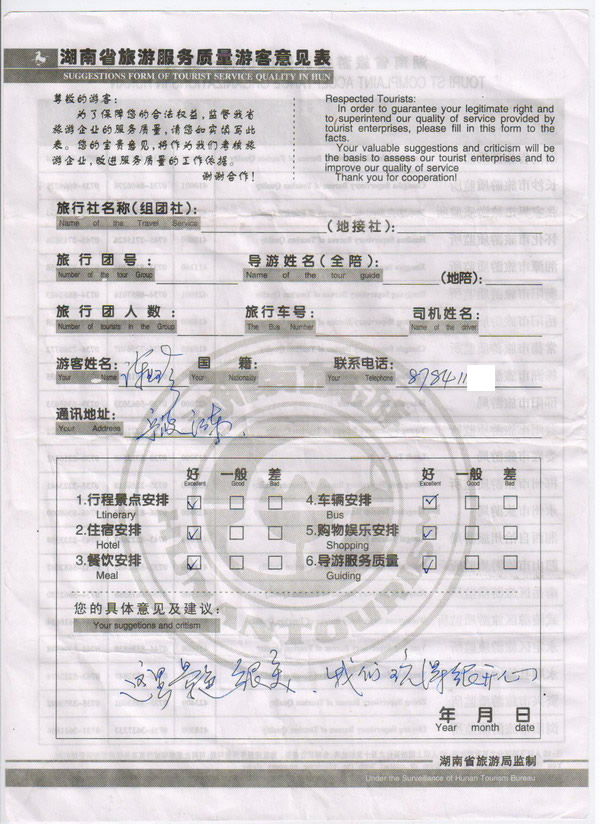 湖南省旅游服务质量游客意见表
SUGGESTIONS FORM OF TOURIST SERVICE QUALITY IN HUN
尊敬的游客:
为了保障您的合法权益,监督我省
旅游企业的服务质量,请您如实填写此
表。您的宝贵意见,将作为我们考核旅
游企业,改进服务质量的工作依据。
谢谢合作!
Respected Tourists:
In order to guarantee your legitimate right and
to superintend our quality of service provided by
tourist enterprises, please fill in this form to the
facts.
Your valuable suggestions and criticism will be
the basis to assess our tourist enterprises and to
improve our quality of service
Thank you for cooperation!
旅行社名称(组团社): (地接社):
Name of the Travel Service
旅行团号: 导游姓名(全陪): (地陪):
Number of the tour Group Name of the tour guide
旅行团人数: 旅行车号: 司机姓名:
Number of tourists in the Group The Bus Number Name of the driver
游客姓名: 国籍: 联系电话: 878411
Your Name Your Nationality Your Telephone
通讯地址: 宁波江东
Your Address
好 一般 差 好 一般 差
Excellent Good Bad Excellent Good Bad
1.行程景点安排 4.车辆安排
Ltinerary Bus
2.住宿安排 5.购物娱乐安排
Hotel Shopping
3.餐饮安排 6.导游服务质量
Meal Guiding
您的具体意见及建议:
Your suggetions and critism
这里景色很美、我们玩得很开心
年 月 日
Year month date
湖南省旅游局监制
Under the Surveillance of Hunan Tourism Bureau
HUNAN TOURISM